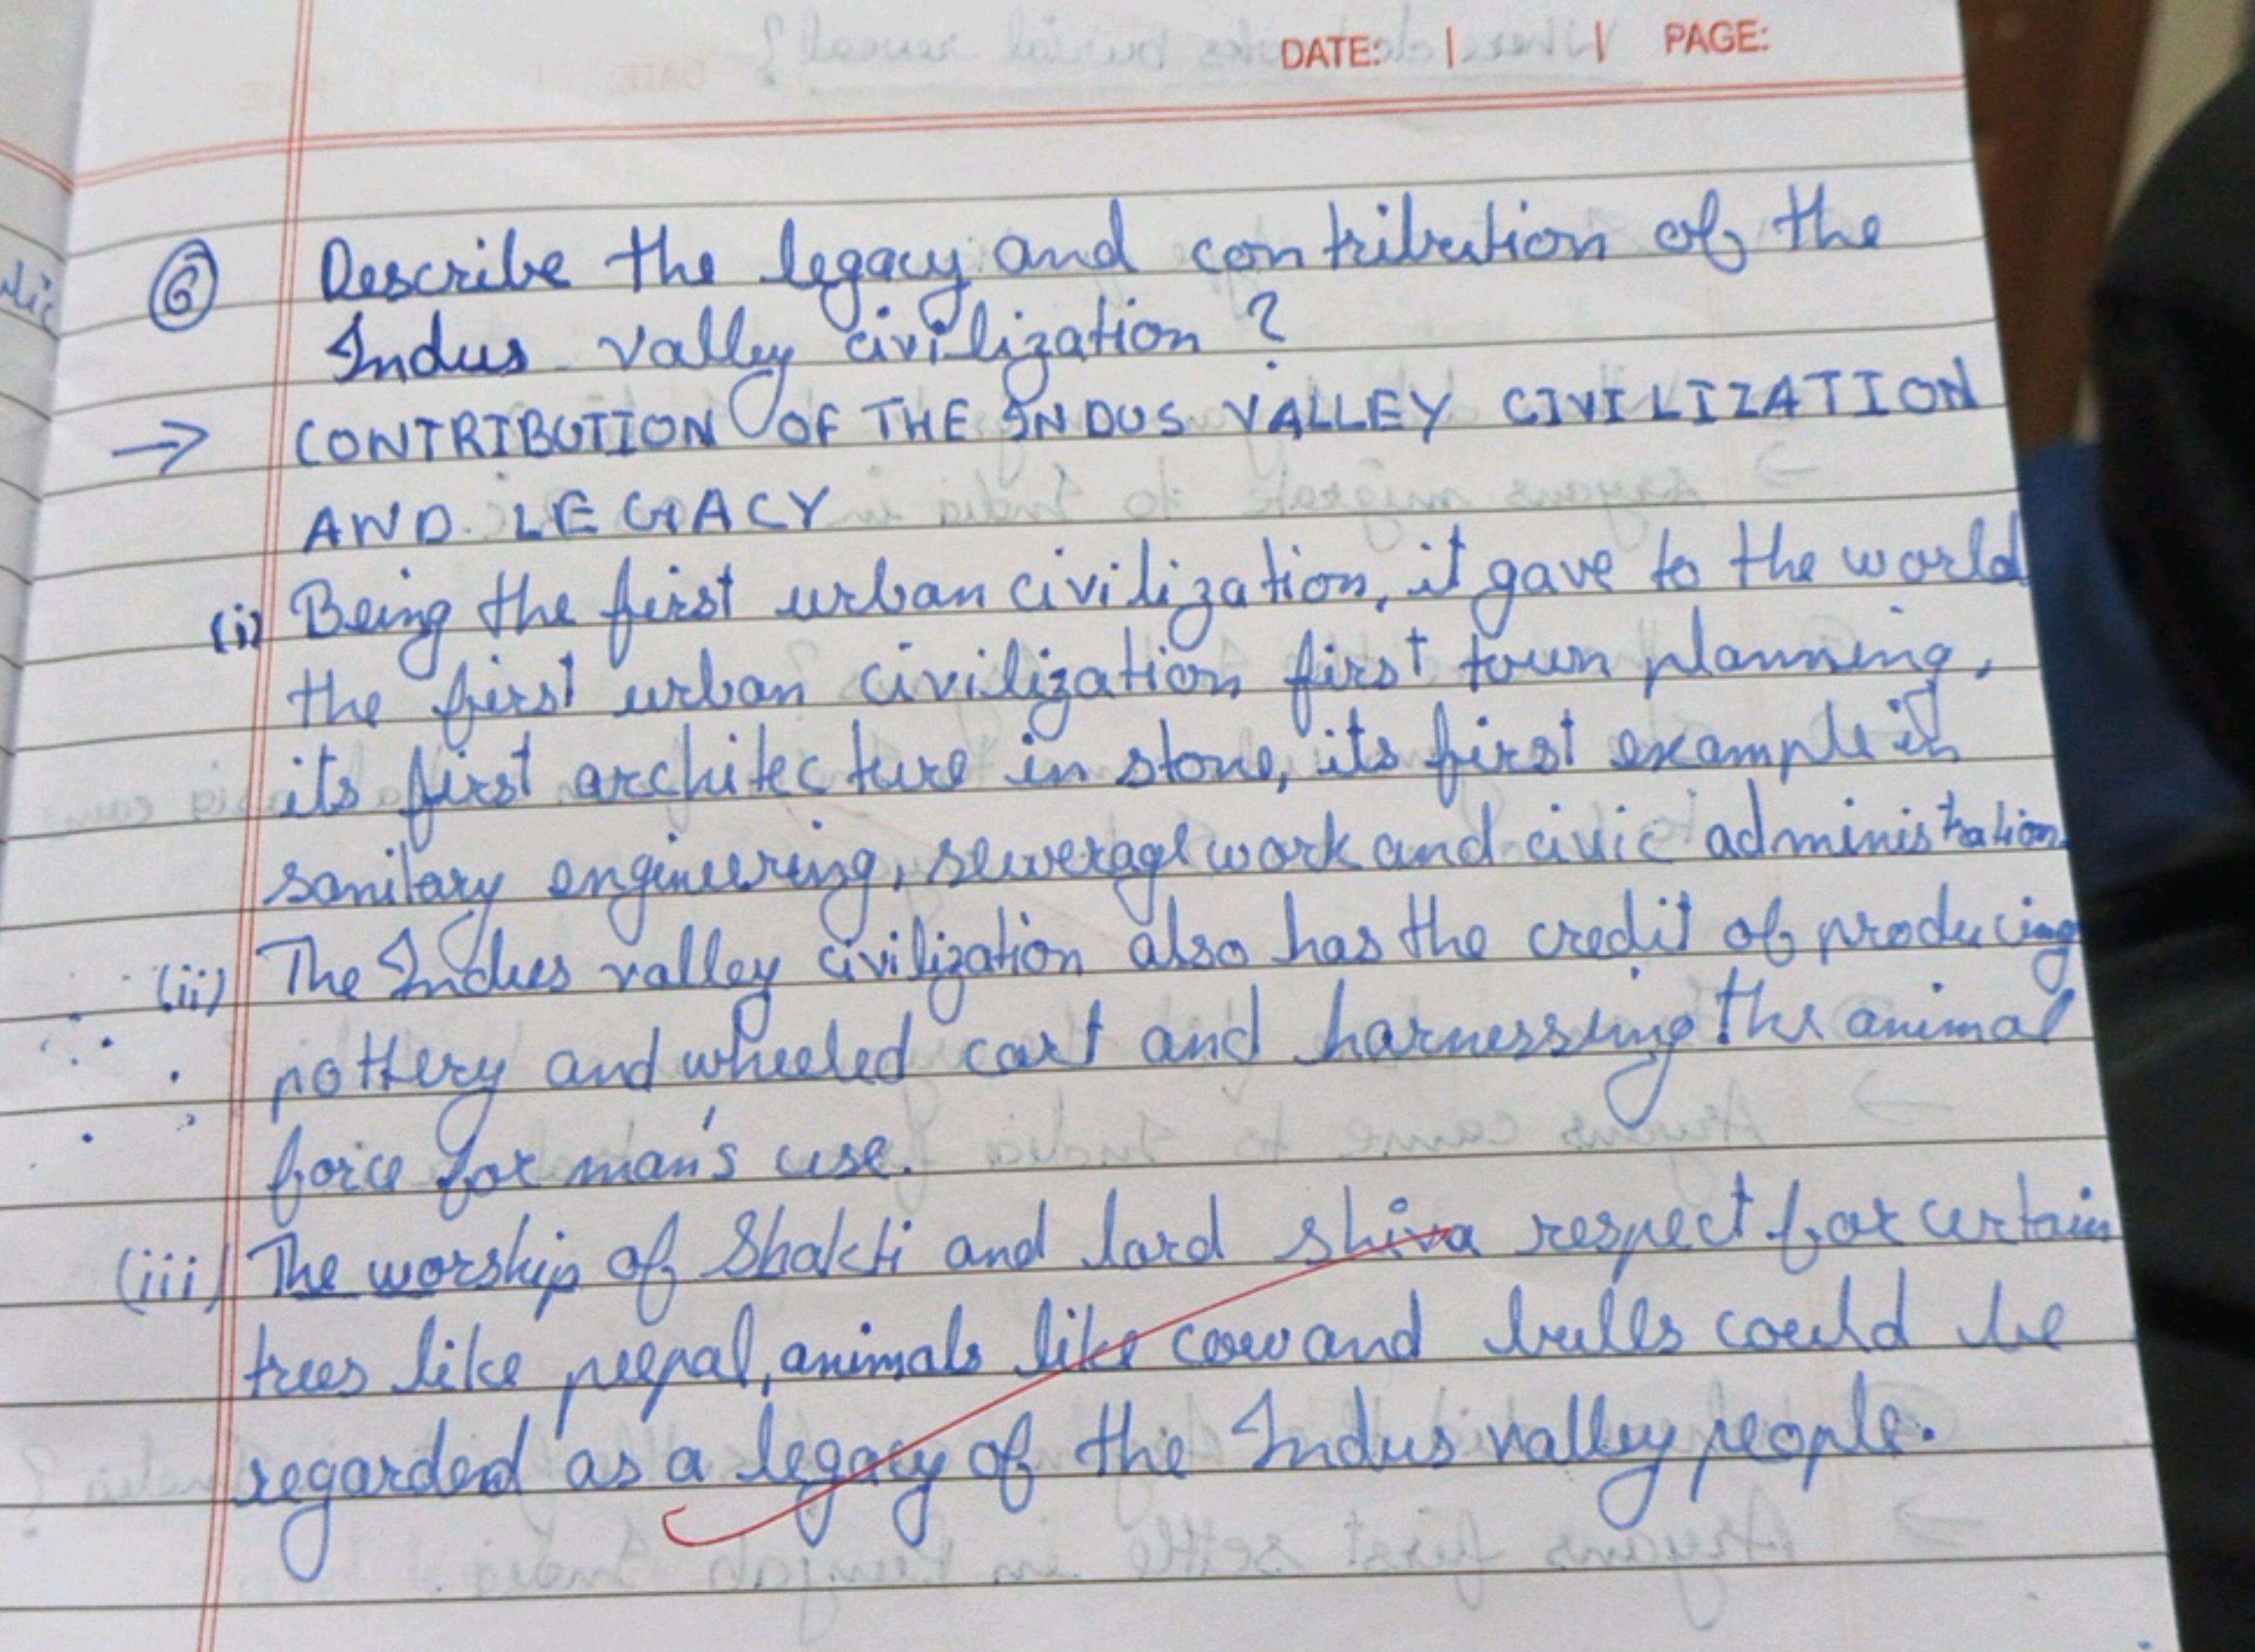 DATE: | | PAGE:
6 Describe the legacy and contribution of the
Indus valley civilization ?
→ CONTRIBUTION OF THE INDUS VALLEY CIVILIZATION
AND LEGACY
(i) Being the first urban civilization, it gave to the world
the first urban civilization first town planning,
its first architecture in stone, its first example in
sanitary engineering, sewerage work and civic administration.
(ii) The Indus valley civilization also has the credit of producing
pottery and wheeled cart and harnessing the animal
force for man's use.
(iii) The worship of Shakti and lord shiva respect for certain
trees like peepal, animals like cow and bulls could be
regarded as a legacy of the Indus valley people.